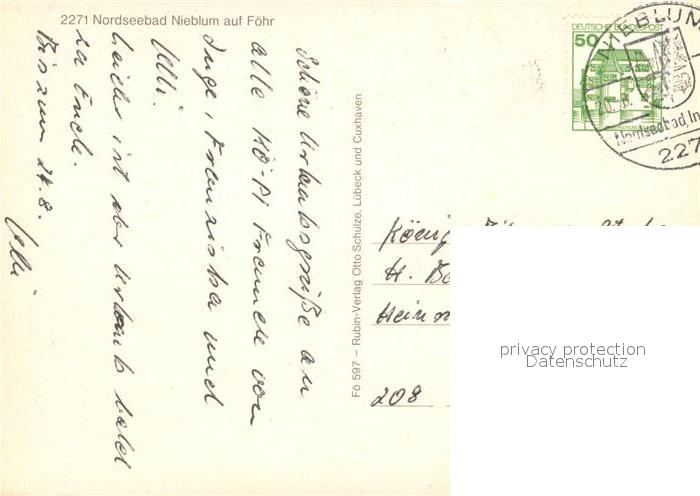 2271 Nordseebad Nieblum auf Föhr
Schöne Urlaubsgrüße an
alle KÖ-PI Freunde von
Inge, Franziska und
Ulli.
Leider ist der Urlaub bald
zu Ende.
Bis zum 24.8.
Ulli
Fö 597 – Rubin-Verlag Otto Schulze, Lübeck und Cuxhaven
DEUTSCHE BUNDESPOST
50
NIEBLUM
Nordseebad
227
König
H.
208
privacy protection
Datenschutz